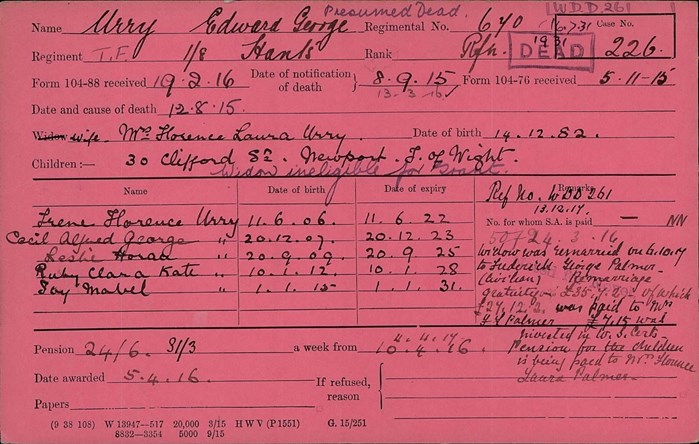 Presumed Dead. W.D.D. 261
Name Urry Edward George Regimental No. 670 16731 Case No.
Regiment T.F. 1/8 Hants Rank Rfn. 1931 DEAD 226.
Form 104-88 received 19.2.16 Date of notification of death 8.9.15 Form 104-76 received 5.11.15
13.3.16
Date and cause of death 12.8.15.
Widow wife. Mrs Florence Laura Urry. Date of birth 14.12.82.
Children :— 30 Clifford St. Newport. I. of Wight.
Widow ineligible for
Name Date of birth Date of expiry Remarks
Ref No. WDD 261
13.12.17.
Irene Florence Urry 11.6.06. 11.6.22 No. for whom S.A. is paid — NN
Cecil Alfred George " 20.12.07. 20.12.23 24.3.16
Leslie Horan " 20.9.09. 20.9.25 Widow was remarried on 6.10.17
Ruby Clara Kate " 10.1.12. 10.1.28 to Frederick George Palmer
Joy Mabel " 1.1.15 1.1.31. (civilian) Remarriage
gratuity £35. of which
£27.12.3. was paid to Mrs
Palmer £7.15 was
invested in W.S. Certs.
Pension for the children
is being paid to Mrs Florence
Laura Palmer
Pension 24/6. 31/3 a week from 10.4.16. 4.4.17
Date awarded 5.4.16. If refused, reason
Papers
(9 38 108) W 13947—517 20,000 3/15 H W V (P1551) G. 15/251
8832—3354 5000 9/15